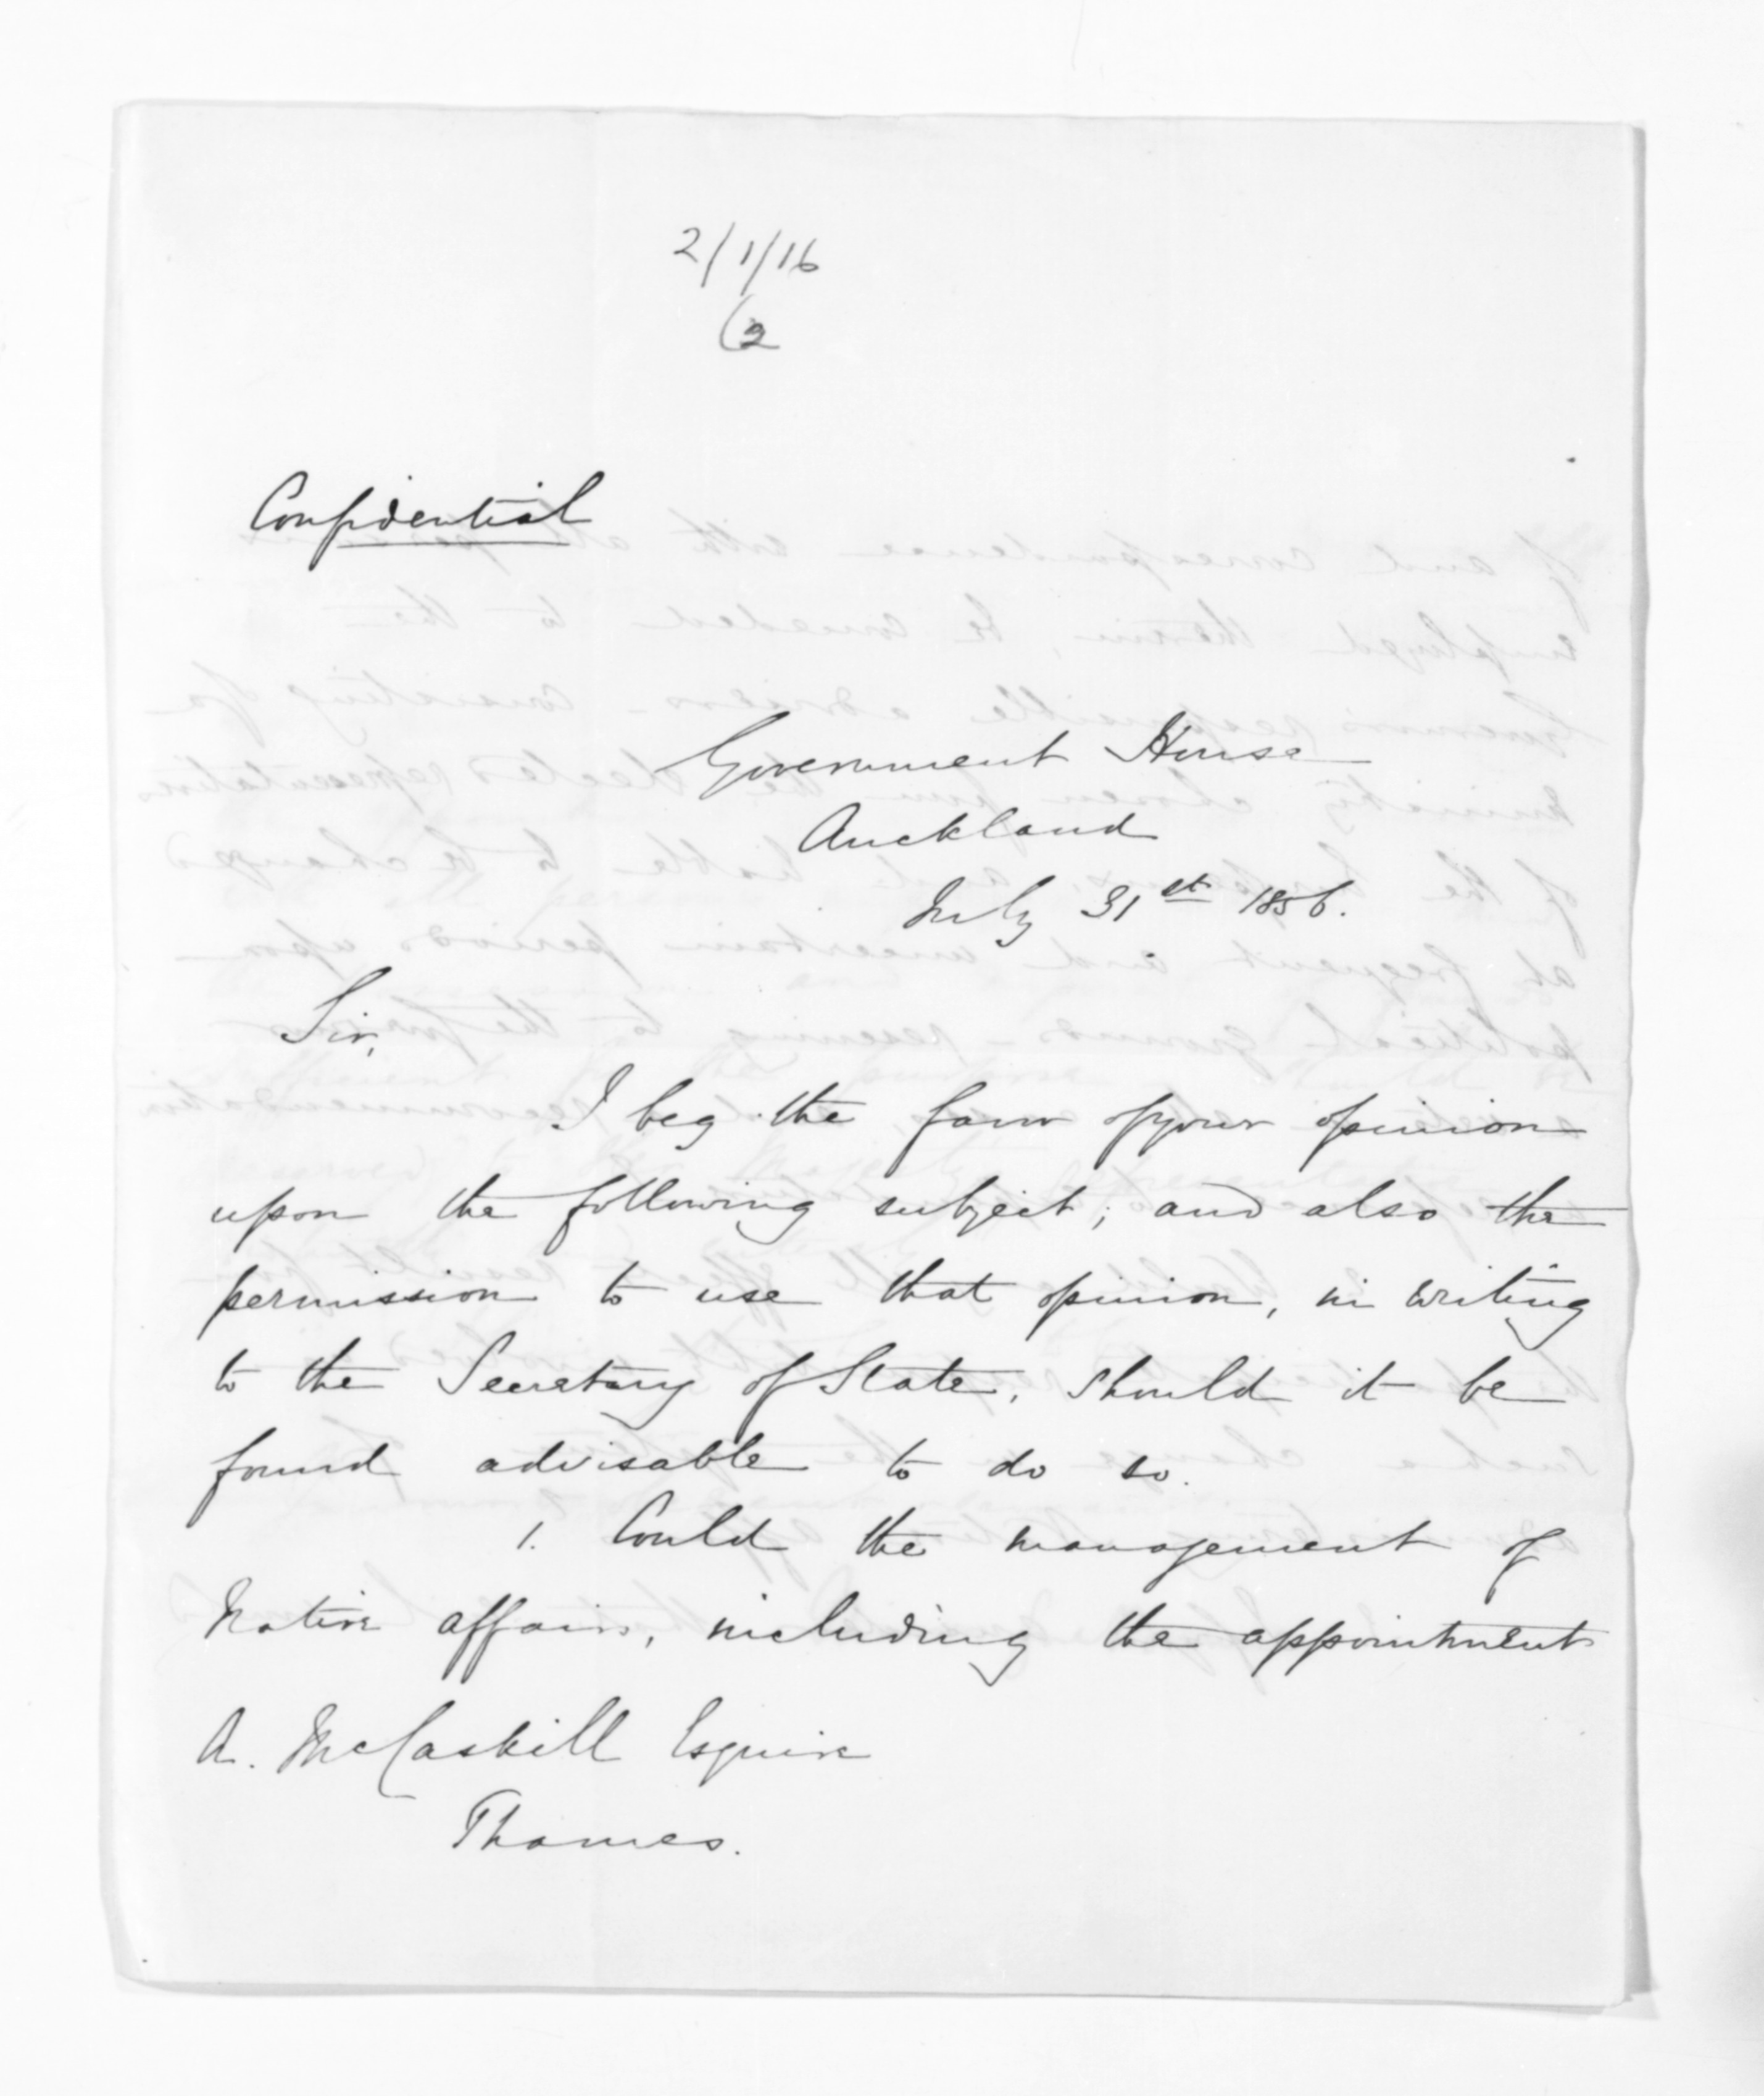 2/1/16
(2
Confidential
Government House
Auckland
July 31st 1856.
Sir,
I beg the favor of your opinion
upon the following subject; and also the
permission to use that opinion, in writing
to the Secretary of State, should it be
found advisable to do so.
1. Could the management of
Native affairs, including the appointment
A. McCaskill Esquire
Thames.